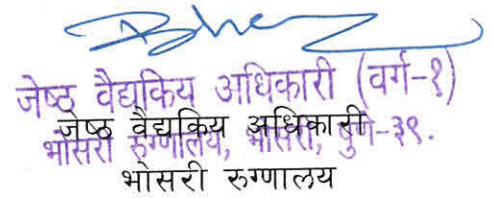 जेष्ठ वैद्यकिय अधिकारी (वर्ग-१)
जेष्ठ वैद्यकिय अधिकारी
भोसरी रुग्णालय, भोसरी, पुणे-३९.
भोसरी रुग्णालय